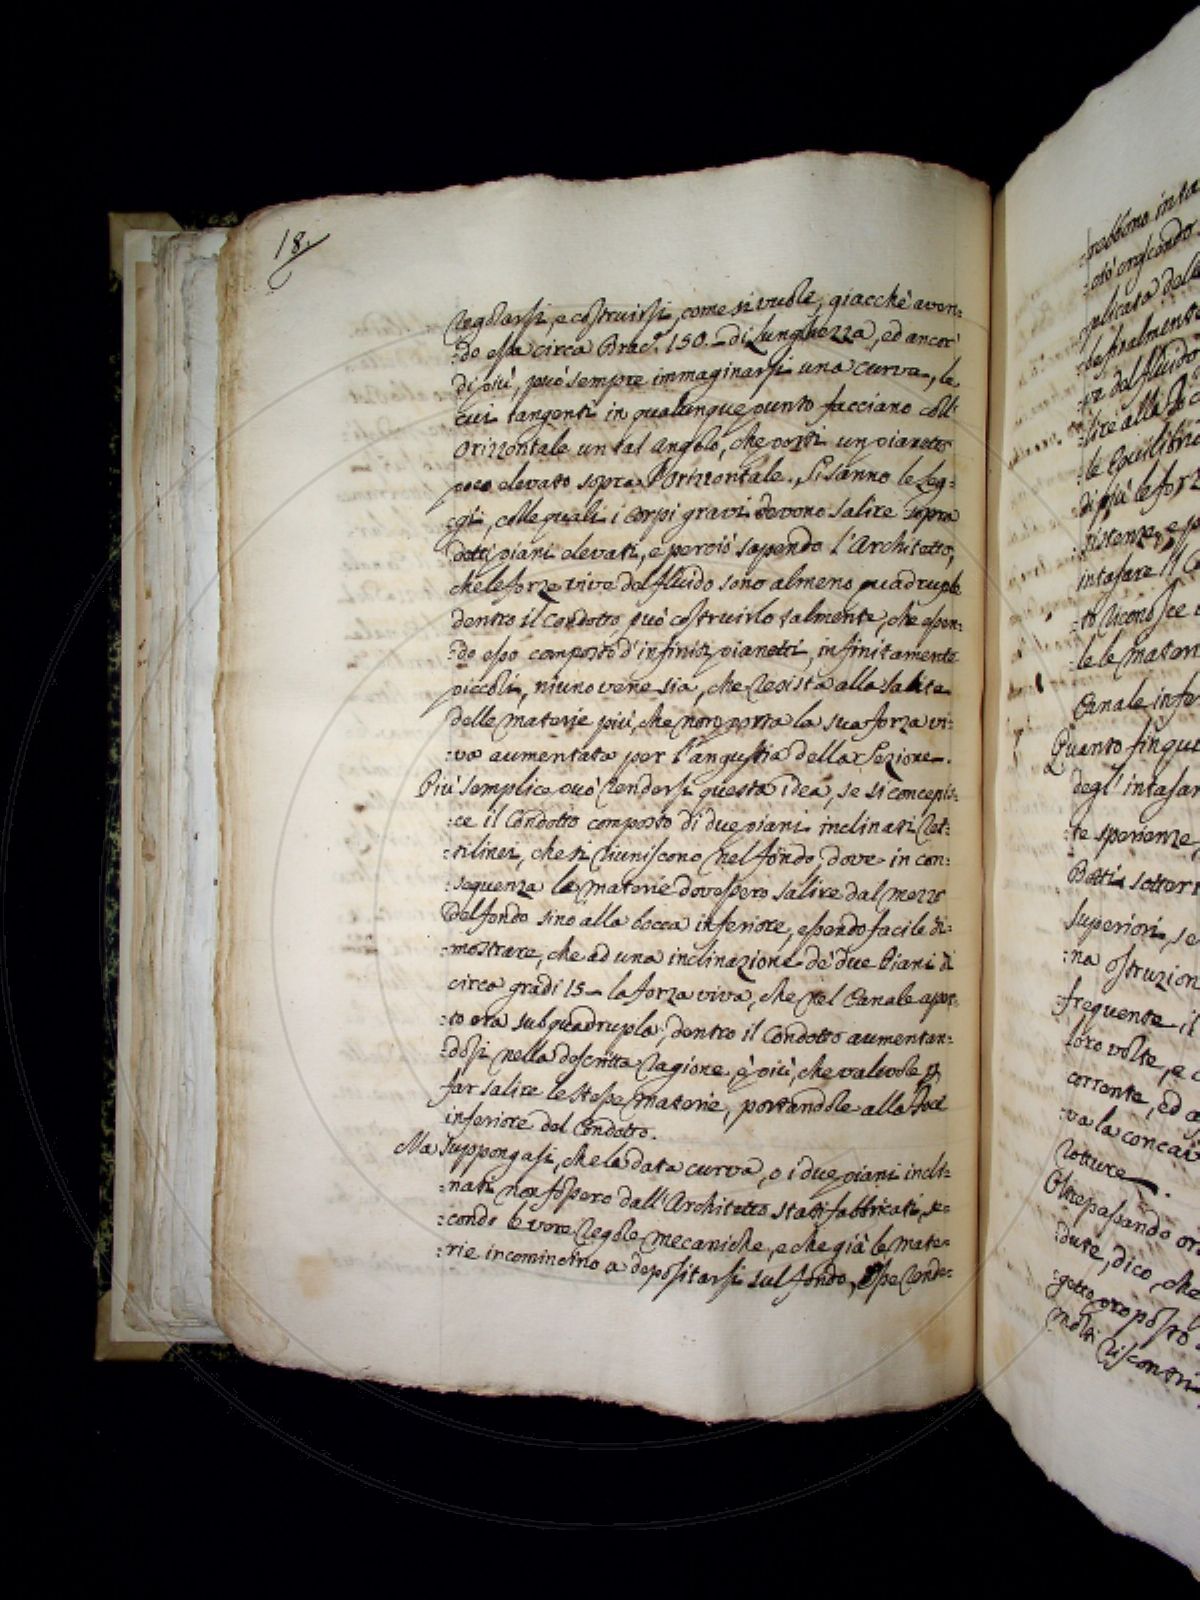 18.
regolarsi, e costruirsi, come si vuole, giacchè aven:
:do essa circa Bracc.ª 150. di Lunghezza, ed ancor
di più, può sempre immaginarsi una curva, le
cui tangenti in qualunque punto facciano coll'
Orizzontale un tal angolo, che porti un pianetto
poco elevato sopra l'Orizzontale. Si sanno le Leg:
:gi, colle quali i corpi gravi devono salire sopra
detti piani elevati, e perciò sapendo l'Architetto,
che le forze vive del fluido sono almeno quadruple
dentro il Condotto, può costruirlo talmente, che essen:
:do esso composto d'infiniti pianetti, infinitamente
piccoli, niuno ve ne sia, che resista alla salita
delle materie più, che non porta la sua forza vi:
:va aumentata per l'angustia della Sezione.
Più semplice può rendersi questa idea, se si concepis:
:ce il Condotto composto di due piani inclinati ret:
:tilinei, che si riuniscono nel fondo, dove in con:
:seguenza le materie dovessero salire dal mezzo
del fondo sino alla bocca inferiore, essendo facile di:
:mostrare, che ad una inclinazione de' due Piani di
circa gradi 15 la forza viva, che nel Canale aper:
:to era subquadrupla, dentro il Condotto aumentan:
:dosi nella descritta ragione è più, che valevole p
far salire le stesse materie, portandole alla Foce
inferiore del Condotto.
Ma suppongasi, che la data curva, o i due piani incli:
:nati non fossero dall'Architetto stati fabbricati, se:
:condo le vere regole mecaniche, e che già le mate:
:rie incomincino a depositarsi sul fondo, esse rende:
:rebbono inta
:plicata delle
:le finalmente
:va del fluido
:lire alla
le Equilibrio
di più le forz
:sistenze, e p
intasare il C
:to riconosce
:le le materi
Canale infe
Quanto finqui
degl'intasar
:te sperienze,
Botti sotterr
superiori, se
:na ostruzion
frequente il
loro volte, e c
corrente, ed a
:va la concav
rotture.
Oltrepassando or
:dute, dico, che
:getto proposto
molti riscontri